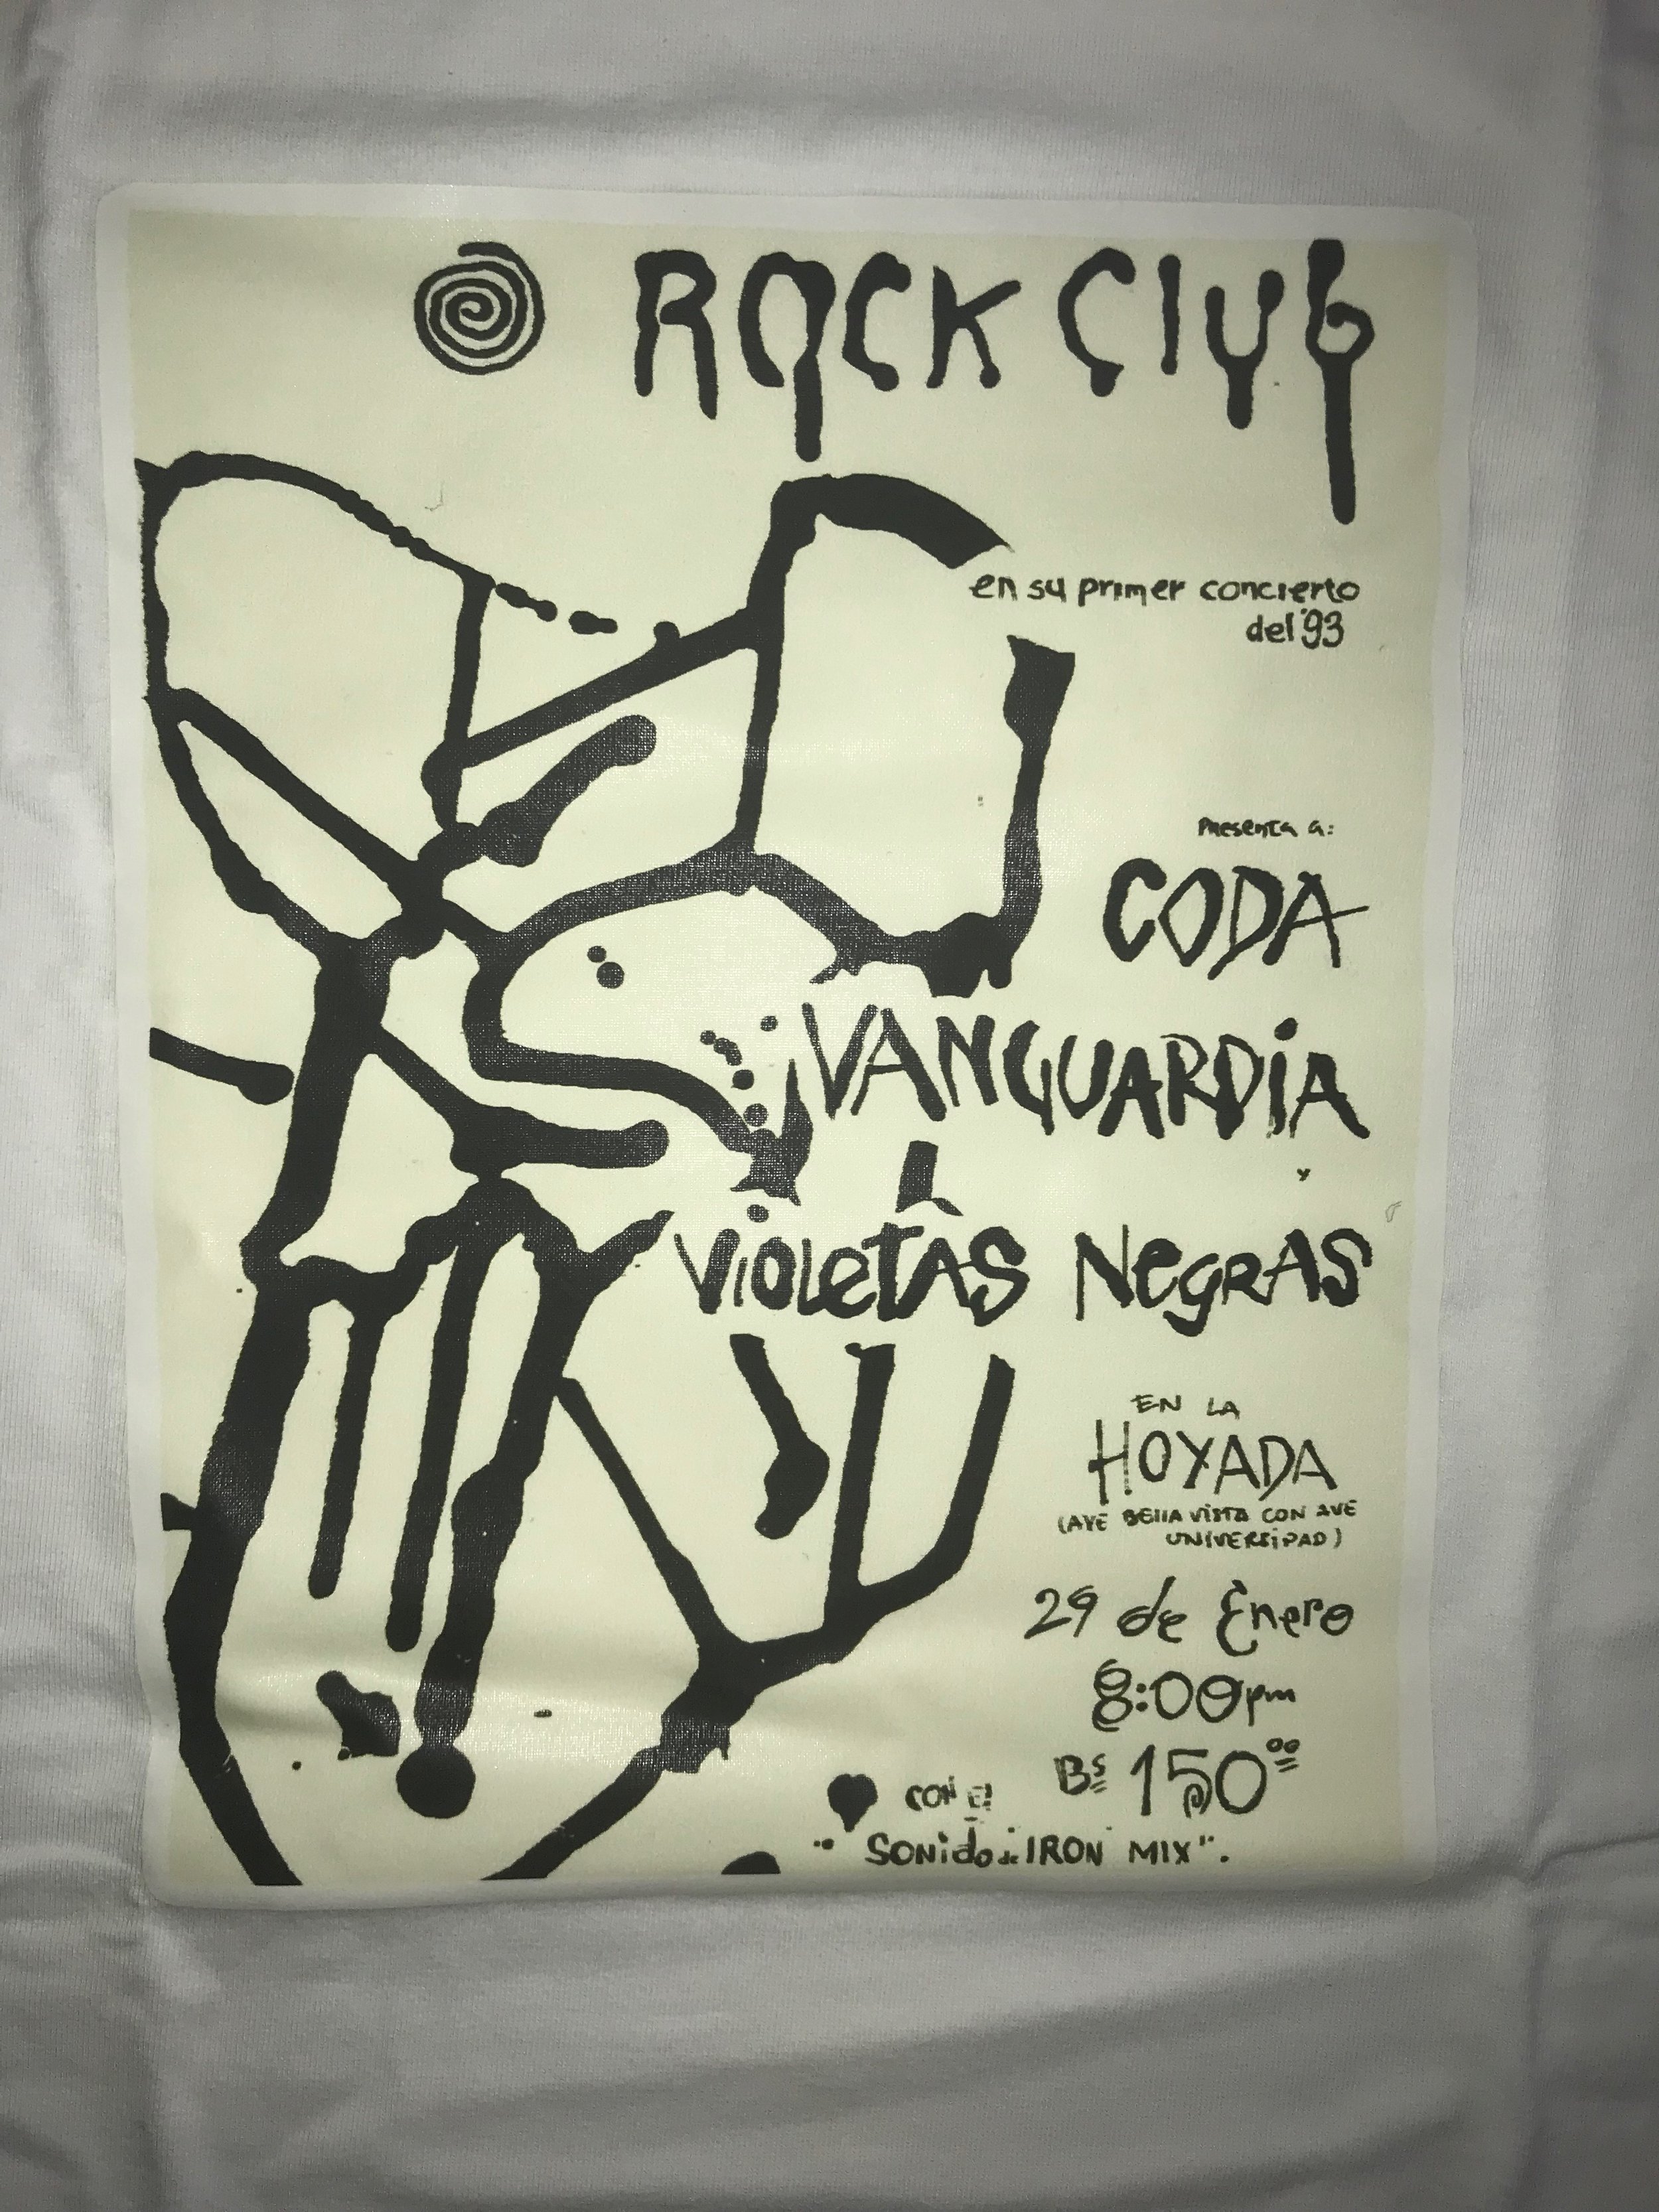 ROCK Club
en su primer concierto
del '93
Presenta a:
CODA
VANGUARDiA
y
VioLetAS NegRAS
EN LA
HOYADA
(AVE BEllA ViSTA CON AVE
UNIVERSiDAD)
29 de Enero
8:00pm
Bs 150°°
CON El
"SONido de IRON MIX".